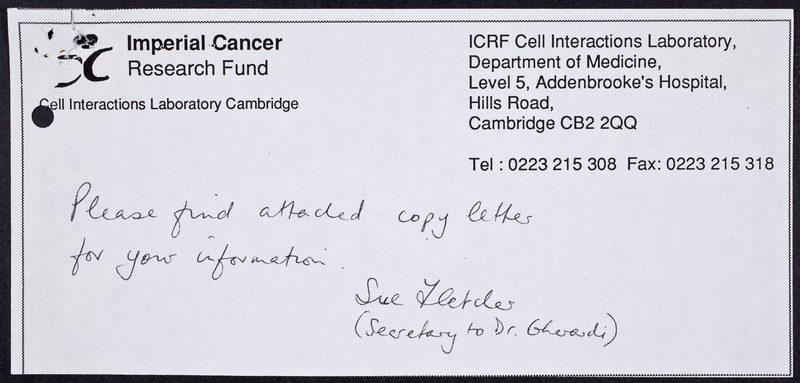 Imperial Cancer
Research Fund
Cell Interactions Laboratory Cambridge
ICRF Cell Interactions Laboratory,
Department of Medicine,
Level 5, Addenbrooke's Hospital,
Hills Road,
Cambridge CB2 2QQ
Tel : 0223 215 308 Fax: 0223 215 318
Please find attached copy letter
for your information.
Sue Fletcher
(Secretary to Dr. Gherardi)